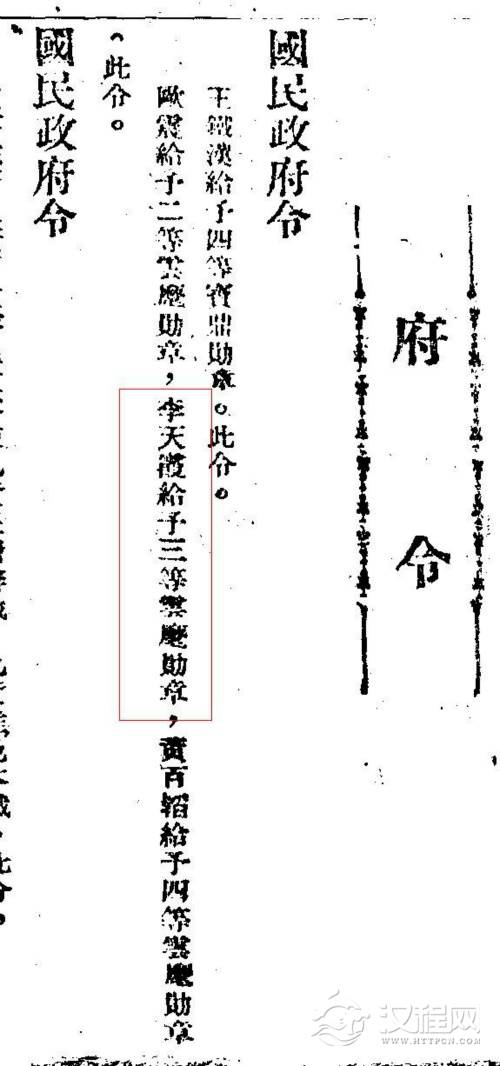 府令
國民政府令
王鐵漢給予四等寶鼎勛章。此令。
歐震給予二等雲麾勛章，李天霞給予三等雲麾勛章，黃百韜給予四等雲麾勛章
。此令。
國民政府令
汉程网
WWW.HTTPCN.COM